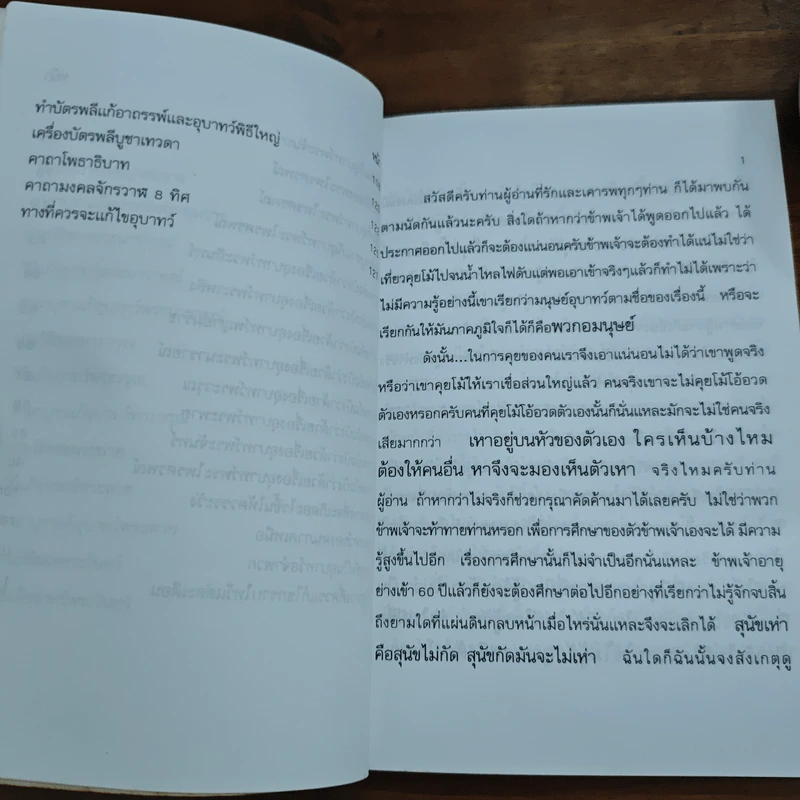 ทำบัตรพลีแก้อาถรรพ์และอุบาทว์พิธีใหญ่
เครื่องบัตรพลีบูชาเทวดา
คาถาโพธาธิบาท
คาถามงคลจักรวาฬ 8 ทิศ
ทางที่ควรจะแก้ไขอุบาทว์
1
สวัสดีครับท่านผู้อ่านที่รักและเคารพทุกๆท่าน ก็ได้มาพบกัน
ตามนัดกันแล้วนะครับ สิ่งใดถ้าหากว่าข้าพเจ้าได้พูดออกไปแล้ว ได้
ประกาศออกไปแล้วก็จะต้องแน่นอนครับข้าพเจ้าจะต้องทำได้แน่ไม่ใช่ว่า
เที่ยวคุยโม้ไปจนน้ำไหลไฟดับแต่พอเอาเข้าจริงๆแล้วก็ทำไม่ได้เพราะว่า
ไม่มีความรู้อย่างนี้เขาเรียกว่ามนุษย์อุบาทว์ตามชื่อของเรื่องนี้ หรือจะ
เรียกกันให้มันภาคภูมิใจก็ได้ก็คือพวกอมนุษย์
ดังนั้น...ในการคุยของคนเราจึงเอาแน่นอนไม่ได้ว่าเขาพูดจริง
หรือว่าเขาคุยโม้ให้เราเชื่อส่วนใหญ่แล้ว คนจริงเขาจะไม่คุยโม้โอ้อวด
ตัวเองหรอกครับคนที่คุยโม้โอ้อวดตัวเองนั้นก็นั่นแหละมักจะไม่ใช่คนจริง
เสียมากกว่า เหาอยู่บนหัวของตัวเอง ใครเห็นบ้างไหม
ต้องให้คนอื่น หาจึงจะมองเห็นตัวเหา จริงไหมครับท่าน
ผู้อ่าน ถ้าหากว่าไม่จริงก็ช่วยกรุณาคัดค้านมาได้เลยครับ ไม่ใช่ว่าพวก
ข้าพเจ้าจะท้าทายท่านหรอก เพื่อการศึกษาของตัวข้าพเจ้าเองจะได้ มีความ
รู้สูงขึ้นไปอีก เรื่องการศึกษานั้นก็ไม่จำเป็นอีกนั่นแหละ ข้าพเจ้าอายุ
ย่างเข้า 60 ปีแล้วก็ยังจะต้องศึกษาต่อไปอีกอย่างที่เรียกว่าไม่รู้จักจบสิ้น
ถึงยามใดที่แผ่นดินกลบหน้าเมื่อไหร่นั่นแหละจึงจะเลิกได้ สุนัขเห่า
คือสุนัขไม่กัด สุนัขกัดมันจะไม่เห่า ฉันใดก็ฉันนั้นจงสังเกตุดู